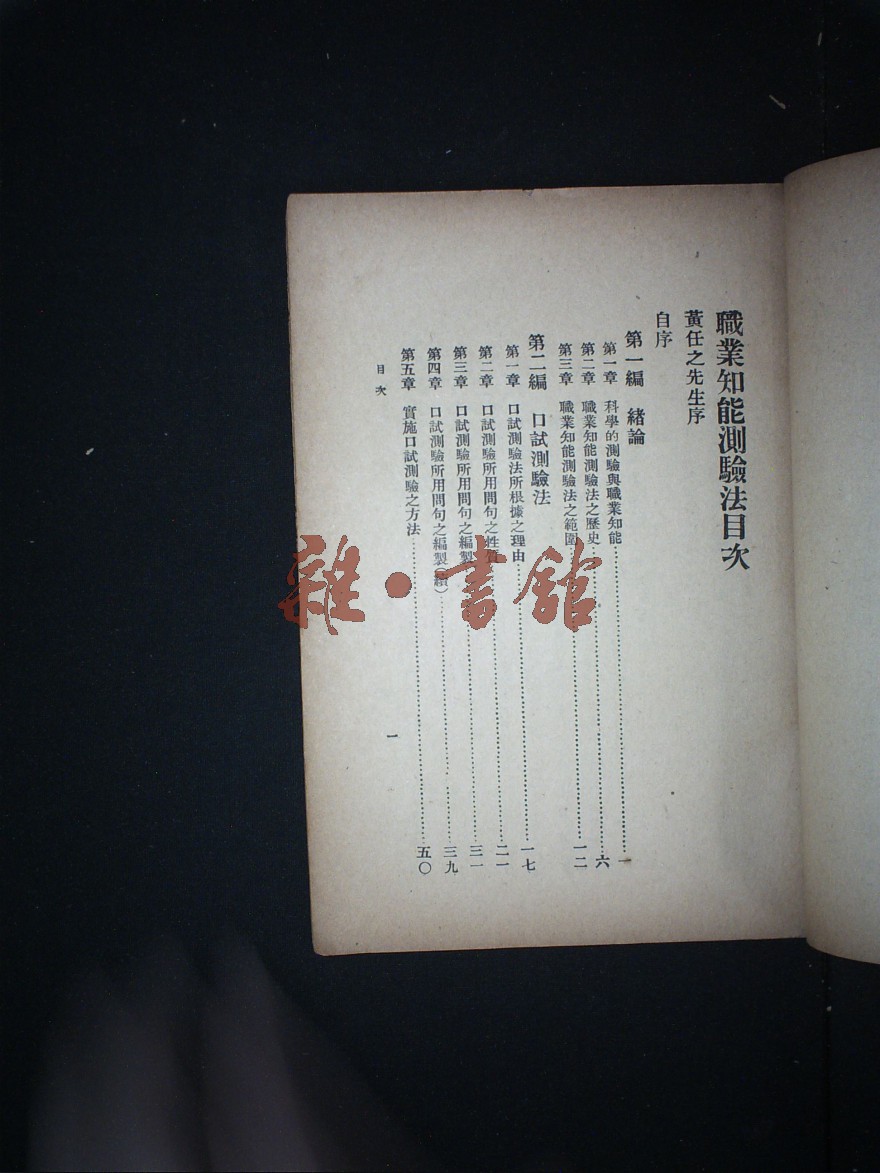 職業知能測驗法目次
黃任之先生序
自序
第一編　緒論
第一章　科學的測驗與職業知能……一
第二章　職業知能測驗法之歷史……六
第三章　職業知能測驗法之範圍……一二
第二編　口試測驗法
第一章　口試測驗法所根據之理由……一七
第二章　口試測驗所用問句之性質……二一
第三章　口試測驗所用問句之編製……三一
第四章　口試測驗所用問句之編製（續）……三九
第五章　實施口試測驗之方法……五〇
目次
一
雜·書館